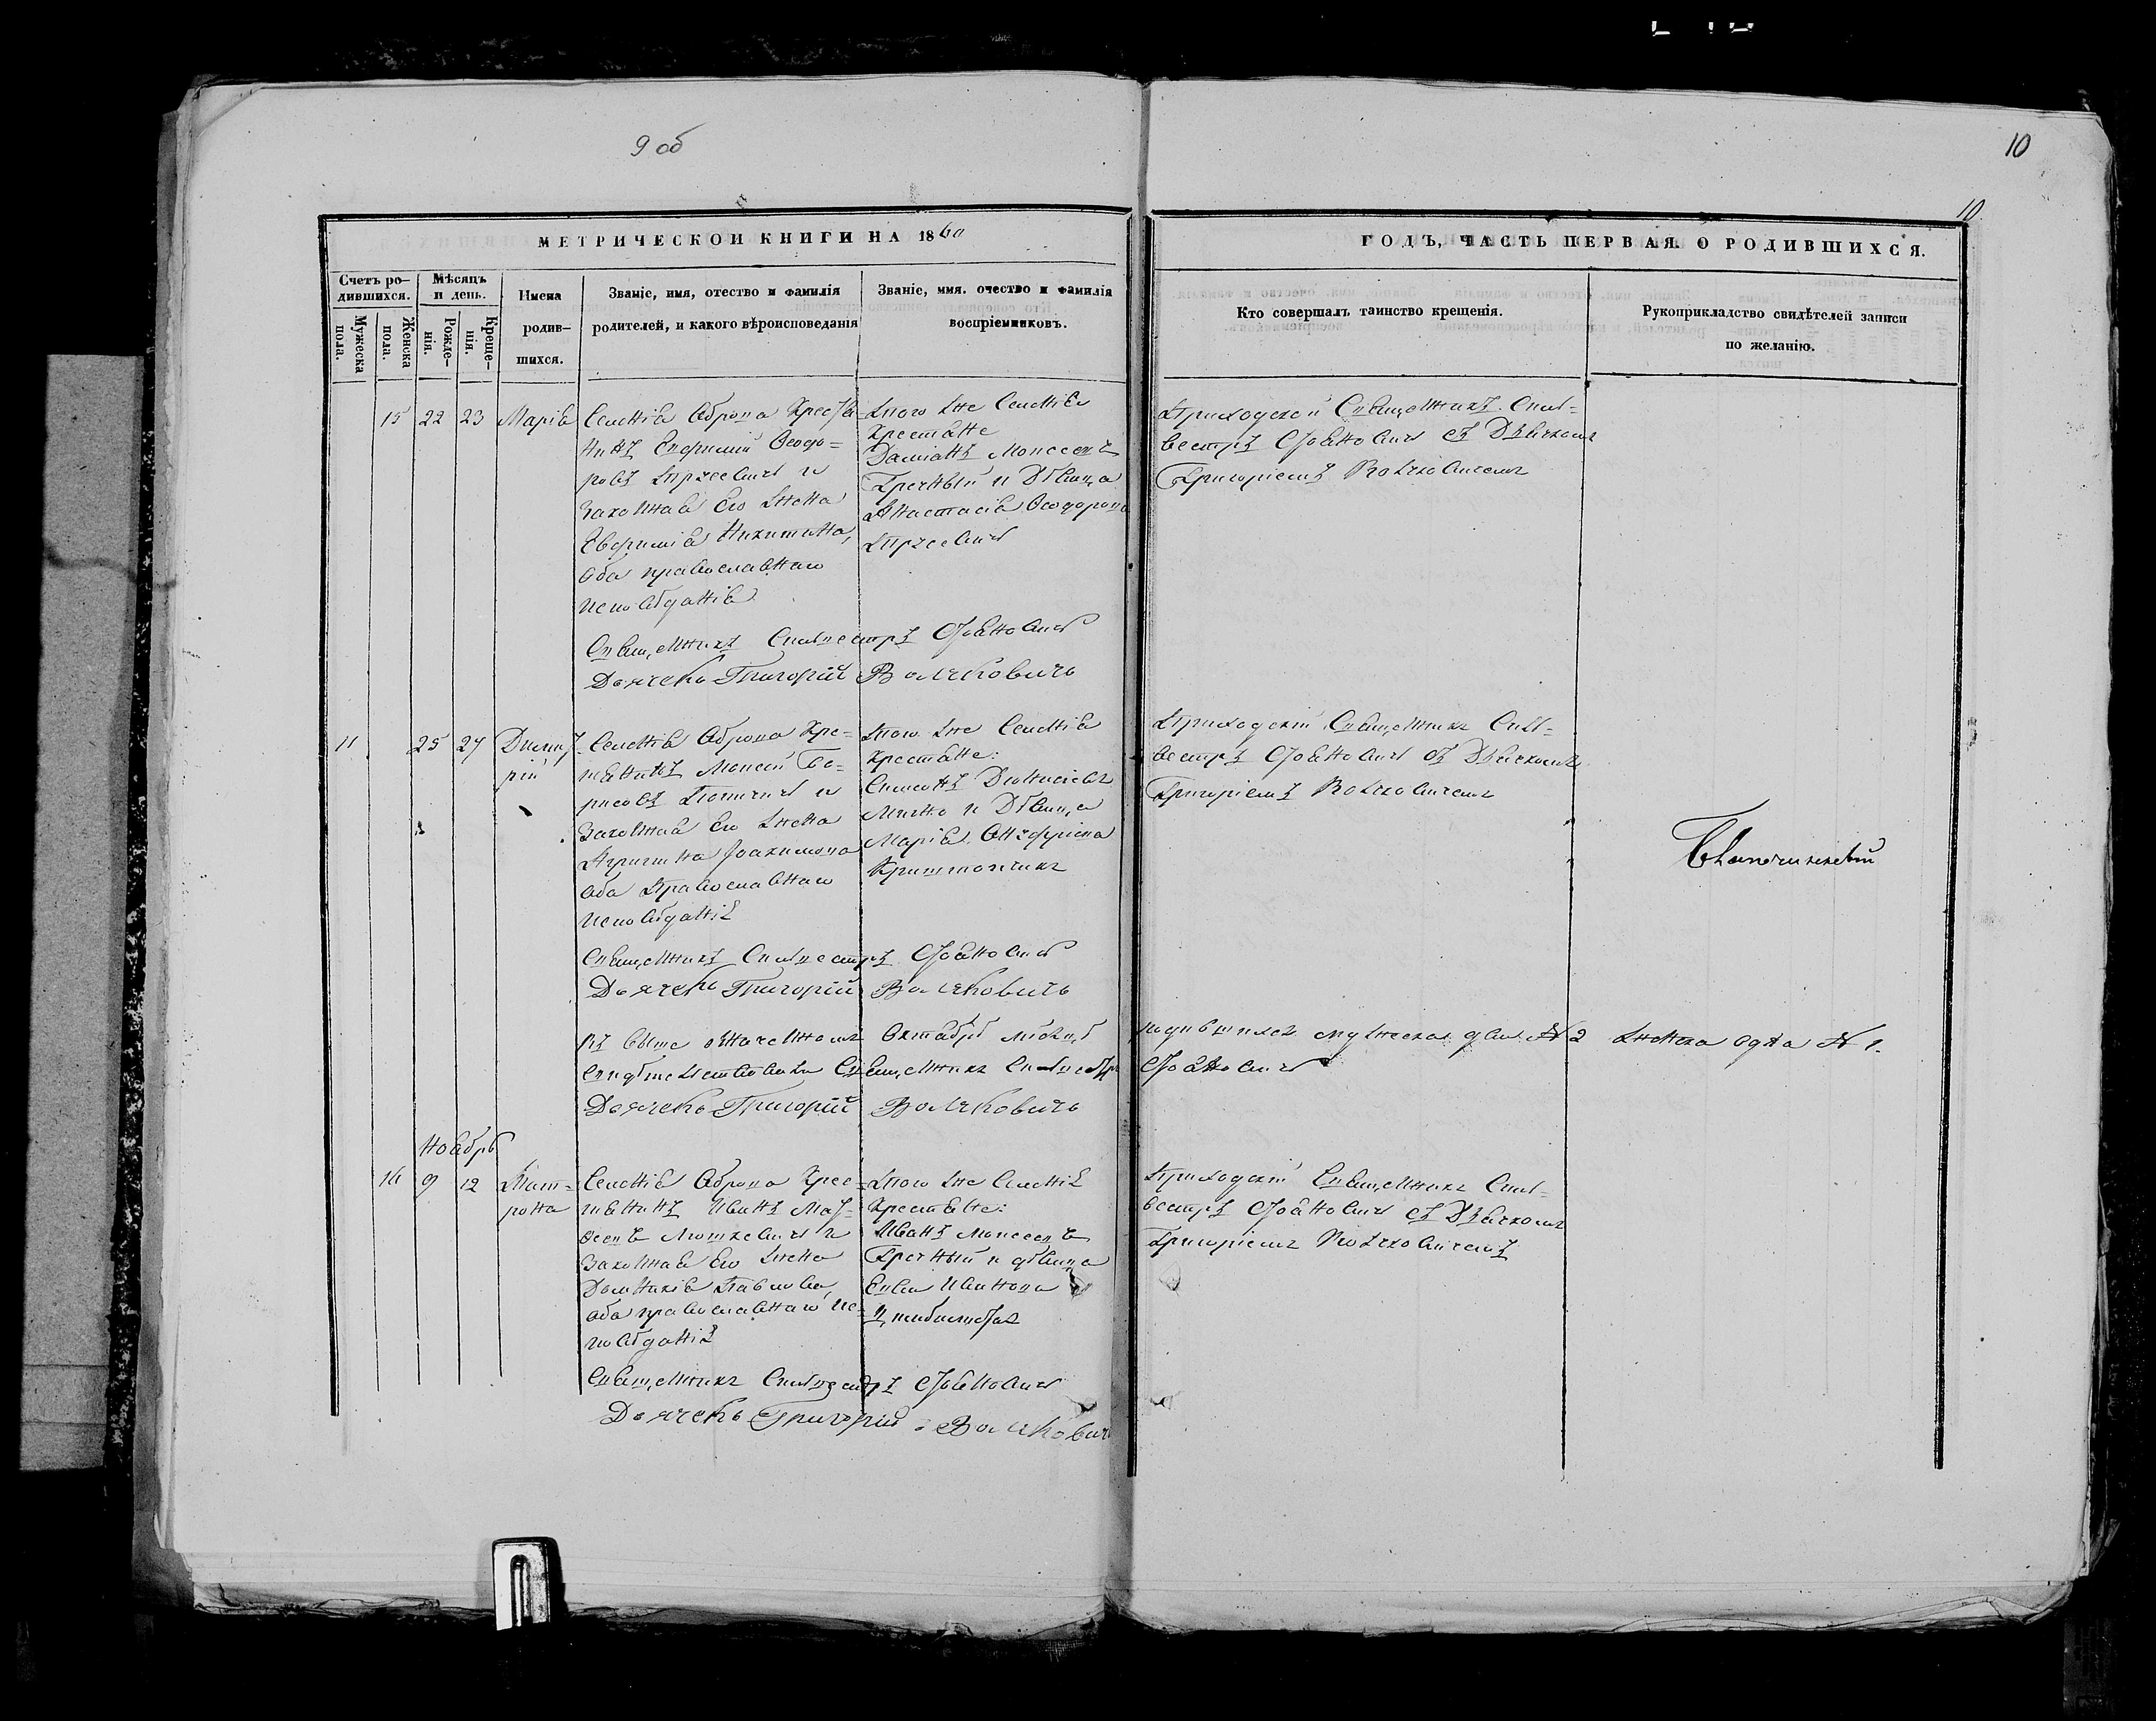 9 об
10
10
МЕТРИЧЕСКОЙ КНИГИ НА 1860
ГОДЪ, ЧАСТЬ ПЕРВАЯ. О РОДИВШИХСЯ.
Счетъ ро-
дившихся.
Мужеска пола.
Женска пола.
Мѣсяцъ
и день.
Рожде-
нія.
Креще-
нія.
Имена
родив-
шихся.
Званіе, имя, отество и фамилія
родителей, и какого вѣроисповеданія
Званіе, имя. очество и фамилія
воспріемниковъ.
Кто совершалъ таинство крещенія.
Рукоприкладство свидѣтелей записи
по желанію.
15 22 23 Марія
Селенія Оброва Кресть-
нинъ Ефримій Ѳеодо-
ровъ и
законная его жена
Евфимія Никитина,
оба православнаго
исповѣданія
того же Селенія
Крестьяне
Даміанъ Моисеевъ
Гречный и Дѣвица
Анастасія Ѳеодорова
Приходской Священникъ Силь-
вестръ съ Дьячкомъ
Григоріемъ Волчковичемъ
Священникъ Сильвестръ
Дьячекъ Григорій Волчковичь
11 25 27 Димит-
рій
Селенія Оброва Кре-
стьянинъ Моисей Бо-
рисовъ и
законная его жена
Іоакимова
оба Православнаго
исповѣданія
того же Селенія
Крестьяне:
Симеонъ Діонисіевъ
и Дѣвица
Марія Онуфріева
Приходскій Священникъ Силь-
вестръ съ Дьячкомъ
Григоріемъ Волчковичемъ
Священникъ Сильвестръ
Дьячекъ Григорій Волчковичь
въ выше означенномъ Октябрѣ мѣсяцѣ родившихся мужеска два № 2 женска одна № 1.
Священникъ Сильвестръ
Дьячекъ Григорій Волчковичь
Ноябрь
16 9 12 Мат-
рона
Селенія Оброва Крес-
тьянинъ Иванъ Мат-
ѳеевъ и
законная его жена
Домникія Павлова,
оба православнаго ис-
повѣданія
того же Селенія
Крестьяне:
Иванъ Моисеевъ
Гречный и дѣвица
Евва Иванова
Приходскій Священникъ Силь-
вестръ съ Дьячкомъ
Григоріемъ Волчковичемъ
Священникъ Сильвестръ
Дьячекъ Григорій Волчковичь